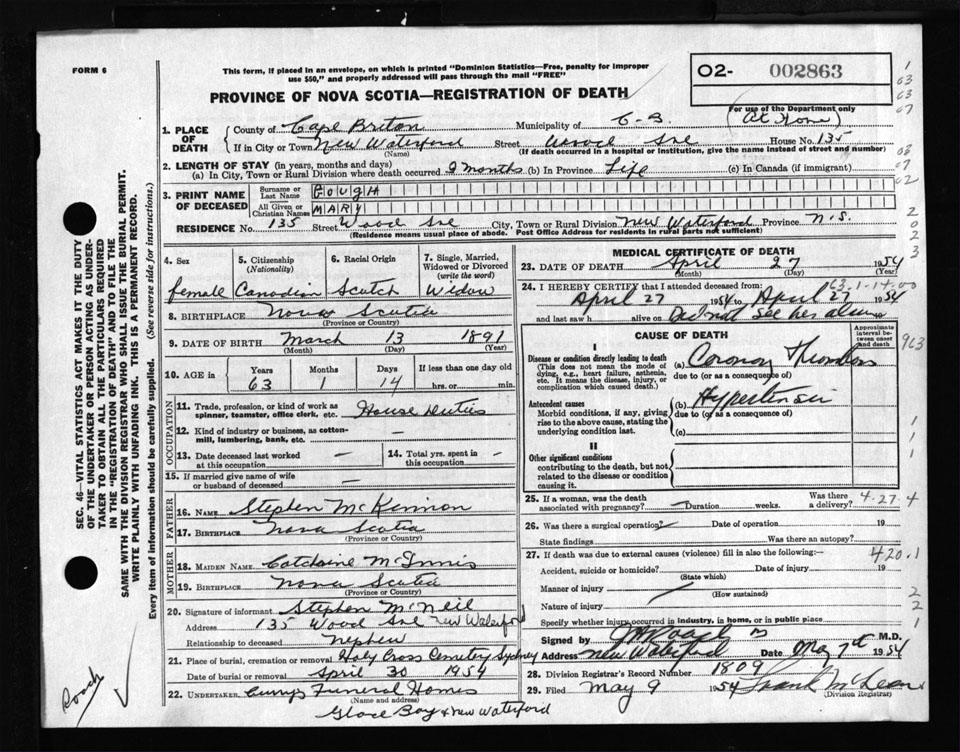 FORM 6
This form, if placed in an envelope, on which is printed "Dominion Statistics—Free, penalty for improper
use $50," and properly addressed will pass through the mail "FREE"
02- 002863
PROVINCE OF NOVA SCOTIA—REGISTRATION OF DEATH
For use of the Department only
(At Home)
1. PLACE OF DEATH
County of Cape Briton Municipality of C-B.
If in City or Town New Waterford Street Wood Ave House No. 135
(Name) (If death occurred in a hospital or institution, give the name instead of street and number)
2. LENGTH OF STAY (in years, months and days)
(a) In City, Town or Rural Division where death occurred 9 months (b) In Province Life (c) In Canada (if immigrant)
3. PRINT NAME OF DECEASED
Surname or Last Name GOUGH
All Given or Christian Names MARY
RESIDENCE No. 135 Street Wood Ave City, Town or Rural Division New Waterford Province N.S.
(Residence means usual place of abode. Post Office Address for residents in rural parts not sufficient)
4. Sex
female
5. Citizenship
(Nationality)
Canadian
6. Racial Origin
Scotch
7. Single, Married, Widowed or Divorced
(write the word)
Widow
8. BIRTHPLACE Nova Scotia
(Province or Country)
9. DATE OF BIRTH March 13 1891
(Month) (Day) (Year)
10. AGE in
Years Months Days If less than one day old
63 1 14 hrs. or min.
OCCUPATION
11. Trade, profession, or kind of work as spinner, teamster, office clerk, etc. House Duties
12. Kind of industry or business, as cotton-mill, lumbering, bank, etc. —
13. Date deceased last worked at this occupation —
14. Total yrs. spent in this occupation —
15. If married give name of wife or husband of deceased —
FATHER
16. Name Stephen McKinnon
17. Birthplace Nova Scotia
(Province or Country)
MOTHER
18. Maiden Name Catherine McInnis
19. Birthplace Nova Scotia
(Province or Country)
20. Signature of informant Stephen McNeil
Address 135 Wood Ave New Waterford
Relationship to deceased Nephew
21. Place of burial, cremation or removal Holy Cross Cemetery Sydney
Date of burial or removal April 30 1954
22. Undertaker Currys Funeral Homes
(Name and address)
Glace Bay & New Waterford
MEDICAL CERTIFICATE OF DEATH
23. DATE OF DEATH April 27 1954
(Month) (Day) (Year)
63.1-14.00
24. I HEREBY CERTIFY that I attended deceased from:
April 27 1954 to April 27 1954
and last saw h alive on Did not see her alive 19
CAUSE OF DEATH
Approximate interval between onset and death
I
Disease or condition directly leading to death
(This does not mean the mode of dying, e.g., heart failure, asthenia, etc. It means the disease, injury, or complication which caused death.)
(a) Coronary Thrombosis
due to (or as a consequence of)
Antecedent causes
Morbid conditions, if any, giving rise to the above cause, stating the underlying condition last.
(b) Hypertension
due to (or as a consequence of)
(c)
II
Other significant conditions
contributing to the death, but not related to the disease or condition causing it.
25. If a woman, was the death associated with pregnancy? — Duration weeks. Was there a delivery?
4-27-4
26. Was there a surgical operation? — Date of operation 19
State findings Was there an autopsy?
27. If death was due to external causes (violence) fill in also the following:—
420.1
Accident, suicide or homicide? Date of injury 19
(State which)
Manner of injury
(How sustained)
Nature of injury
Specify whether injury occurred in industry, in home, or in public place
Signed by M.D.
Address New Waterford Date May 7th 1954
28. Division Registrar's Record Number 1809
29. Filed May 9 1954 Frank McLean
(Division Registrar)
SEC. 46—VITAL STATISTICS ACT MAKES IT THE DUTY
OF THE UNDERTAKER OR PERSON ACTING AS UNDER-
TAKER TO OBTAIN ALL THE PARTICULARS REQUIRED
IN THE "REGISTRATION OF DEATH" AND TO FILE THE
SAME WITH THE DIVISION REGISTRAR WHO SHALL ISSUE THE BURIAL PERMIT.
WRITE PLAINLY WITH UNFADING INK. THIS IS A PERMANENT RECORD.
Every item of information should be carefully supplied. (See reverse side for instructions.)
1
63
63
67
08
07
02
2
0
2
3
963
1
1
1
2
2
1